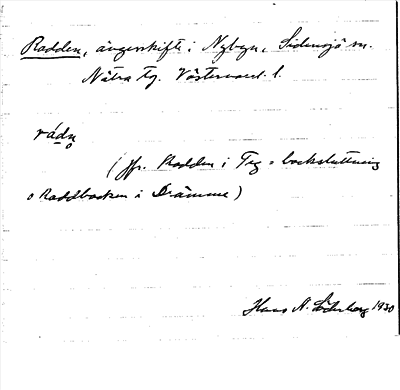 Radden, ängesskifte i Nybyn, Sidensjö sn.
Nätra tg. Västernorrl. l.
rádn̥
(jfr. Radden i Teg = backsluttning
o Raddbacken i Drämme)
Hans N. Söderberg 1930